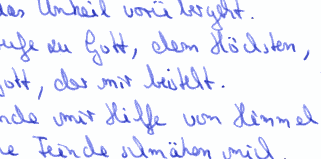 das Unheil vorübergeht.
rufe zu Gott, dem Höchsten,
Gott, der mir beisteht.
nde mir Hilfe vom Himmel
ne Feinde schmähen mich.